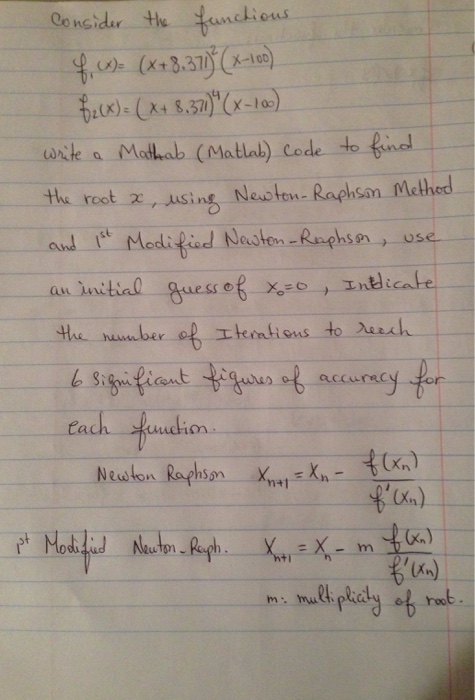 Consider the functions
f₁(x)= (x+8.371)²(x-100)
f₂(x)= (x+8.371)⁴(x-100)
write a Mathab (Matlab) code to find
the root x, using Newton-Raphson Method
and 1st Modified Newton-Raphson, use
an initial guess of x₀=0, Indicate
the number of Iterations to reach
6 significant figures of accuracy for
each function.
Newton Raphson Xn+1 = Xn - f(xn) / f'(xn)
1st Modified Newton-Raph. Xn+1 = Xn - m f(xn) / f'(xn)
m: multiplicity of root.